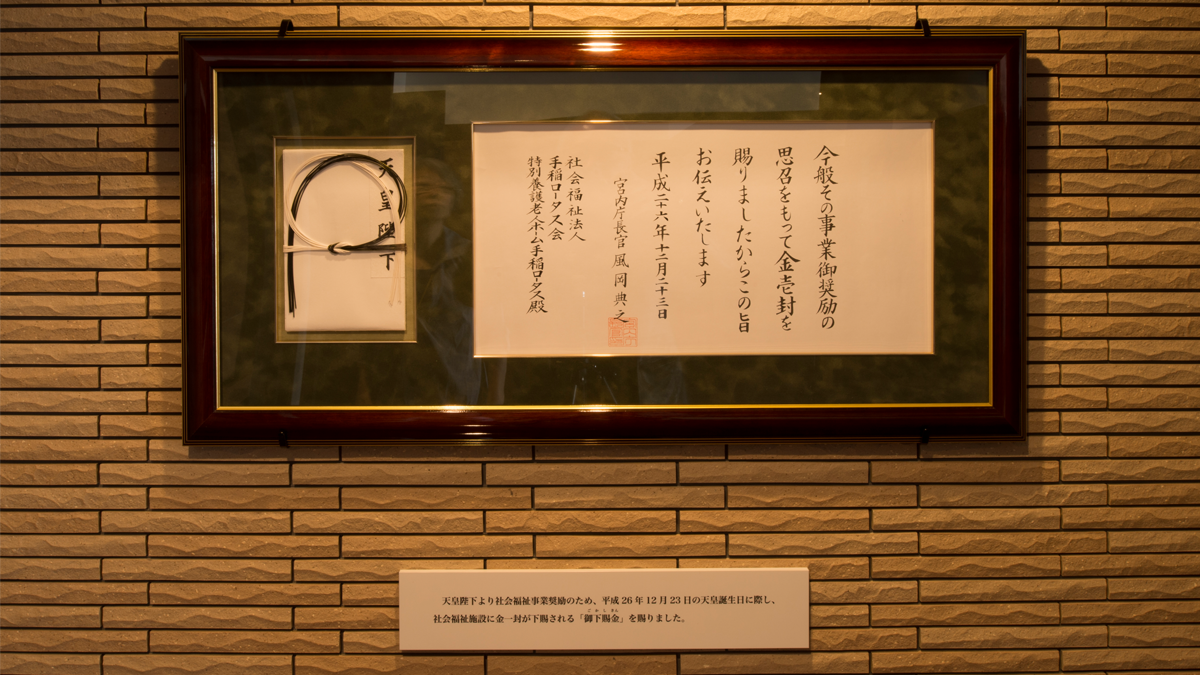 今般その事業御奨励の
思召をもって金壱封を
賜りましたからこの旨
お伝えいたします
平成二十六年十二月二十三日
宮内庁長官 風岡典之
社会福祉法人
手稲ロータス会
特別養護老人ホーム手稲ロータス殿
天皇陛下
天皇陛下より社会福祉事業奨励のため、平成26年12月23日の天皇誕生日に際し、
社会福祉施設に金一封が下賜される「御下賜金」を賜りました。
ごかしきん